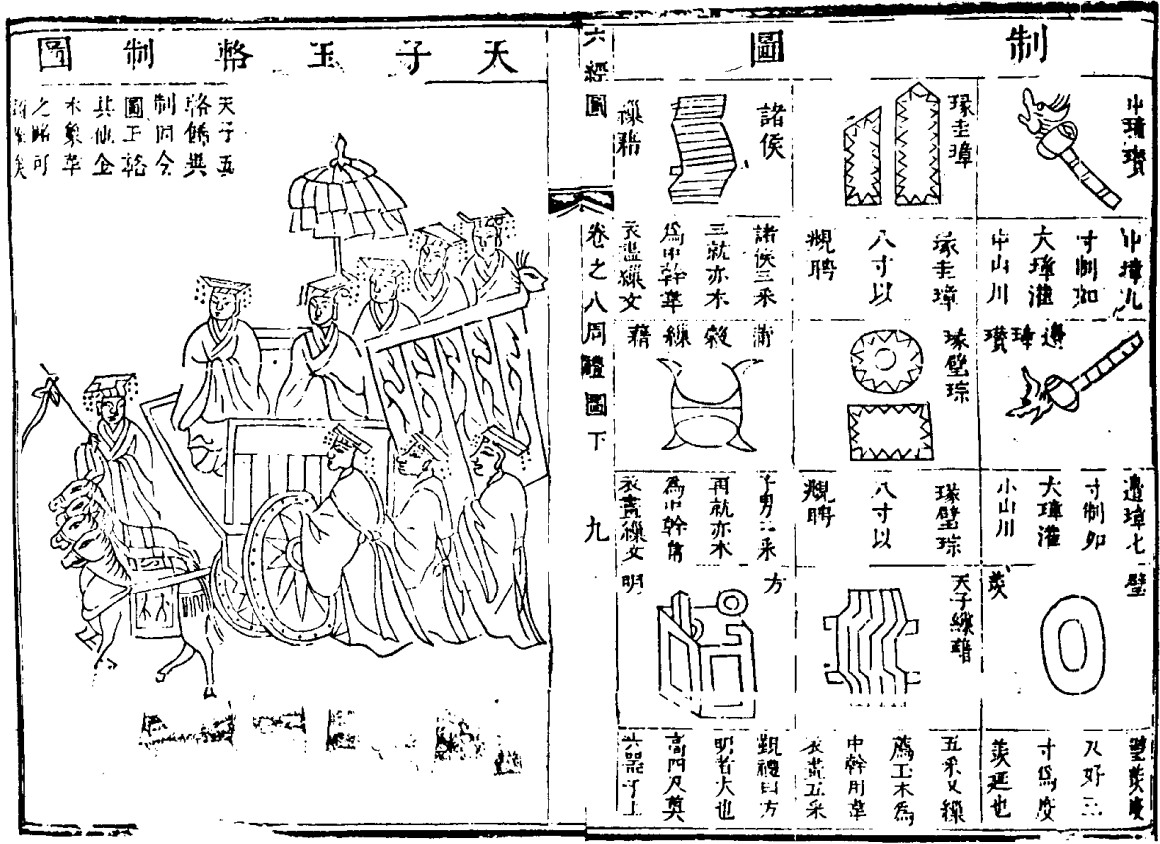 制圖
中璋瓚
中璋九
寸制如
大璋灌
中山川
邊璋瓚
邊璋七
寸制如
大璋灌
小山川
璧羨
璧羨度
尺好三
寸為度
羨延也
瑑圭璋
瑑圭璋
八寸以
覜聘
瑑璧琮
瑑璧琮
八寸以
覜聘
天子繅藉
五采又繅
薦玉木為
中幹用韋
衣畫五采
諸侯
繅藉
諸侯三采
三就亦木
為中幹韋
衣畫繅文
蒲穀繅藉
子男二采
再就亦木
為中幹韋
衣畫繅文
方明
覲禮曰方
明者木也
高四尺奠
六器于上
六經圖
卷之八周禮圖下
九
天子玉輅制圖
天子五
輅舊與
制同今
圖玉輅
其他金
木象革
之輅可